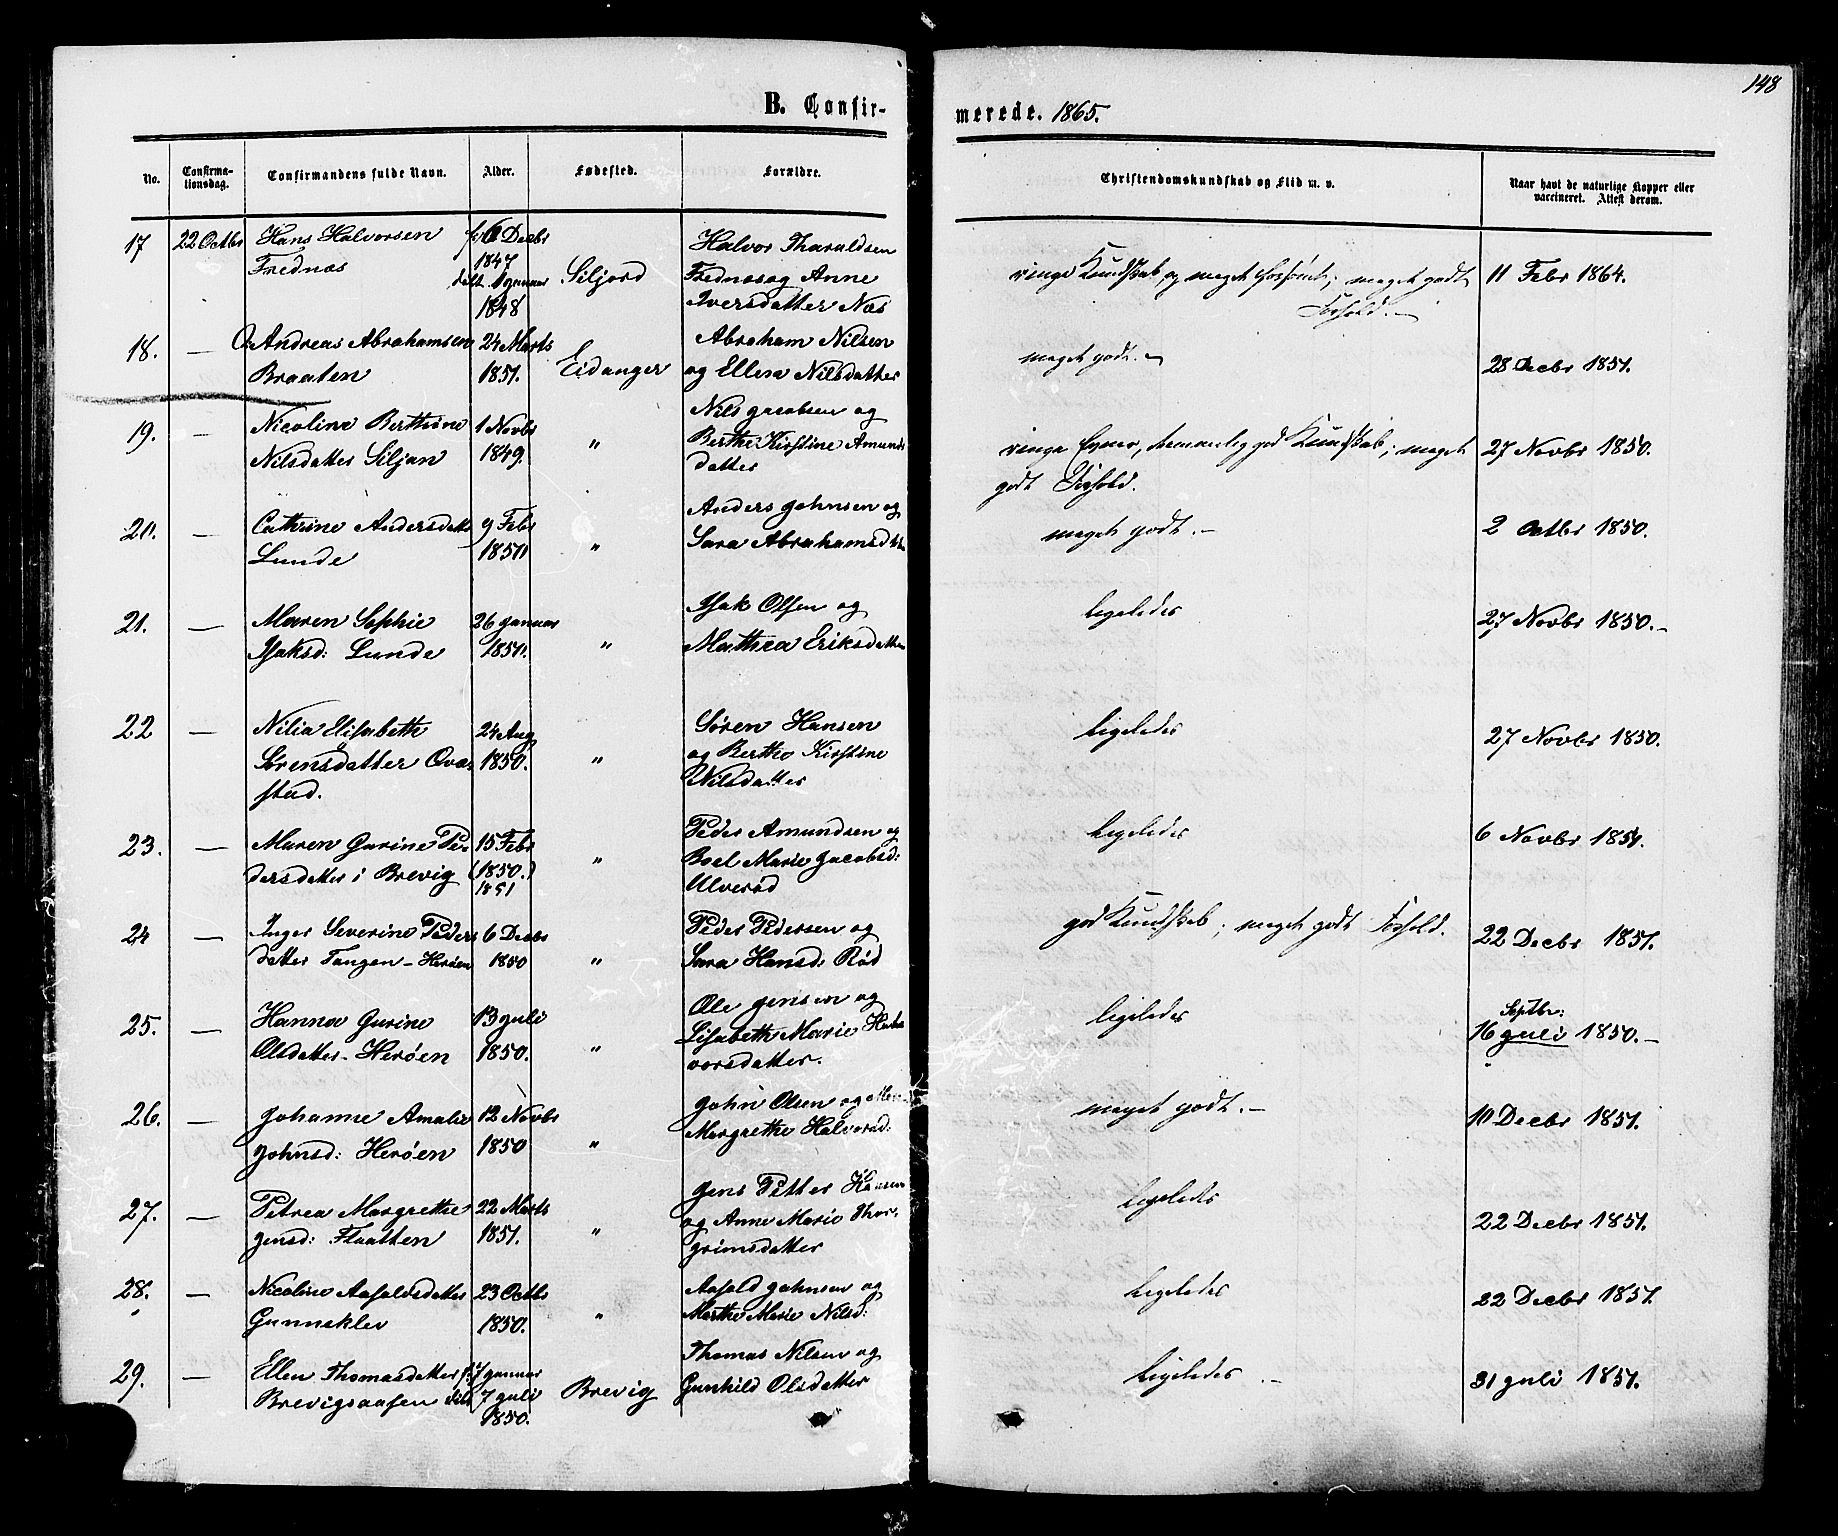 148
B. Confir-
merede. 1865.
No.
Confirma-
tionsdag.
Confirmandens fulde Navn.
Alder.
Fødested.
Forældre.
Christendomskundskab og Flid m. v.
Naar havt de naturlige Kopper eller
vaccineret. Attest derom.
17 22 Octbr Hans Halvorsen f. 6 Decbr Halvor Tharaldsen
Frednæs 1847 Siljord Frednæs og Anne ringe Kundskab, og meget forsømt; meget godt 11 Febr 1864.
døbt 1 Januar Iversdatter Næs Forhold. -
1848
18. — Andreas Abrahamsen 24 Marts Eidanger Abraham Nilsen meget godt. - 28 Decbr 1851.
Braaten 1851. og Ellen Nilsdatter
19. — Nicoline Berthine 1 Novbr " Nils Jacobsen og ringe Evner, temmelig god Kundskab; meget 27 Novbr 1850.
Nilsdatter Siljan 1849. Berthe Kirstine Amunds godt Forhold.
datter
20. — Cathrine Andersdatt 9 Febr " Anders Johnsen og meget godt. - 2 Octbr 1850.
Lunde 1850 Sara Abrahamsdtr
21. — Maren Sophie 26 Januar " Isak Olsen og ligeledes 27 Novbr 1850. -
Isaksd: Lunde 1850. Mathea Eriksdatter
22 — Nilia Elisabeth 24 Aug " Søren Hansen ligeledes 27 Novbr 1850.
Sørensdatter Ova- 1850. og Berthe Kirstine
stad. Nilsdatter
23. — Maren Gurine Pe- 15 Febr " Peder Amundsen og ligeledes 6 Novbr 1851.
dersdatter i Brevig (1850.) Boel Marie Jacobsd:
1851 Ulverød
24 — Inger Severine Peders 6 Decbr " Peder Pedersen og god Kundskab; meget godt Forhold. 22 Decbr 1851.
datter Tangen - Herøen 1850 Sara Hansd: Rød
25. — Hanna Gurine 13 Juli " Ole Jensen og ligeledes Septbr:
Olsdatter - Herøen 1850. Lisabeth Marie Hal- 16 Juli 1850. -
vorsdatter.
26. — Johanne Amalie 12 Novbr " John Olsen og meget godt. - 10 Decbr 1851.
Johnsd: Herøen 1850 Margrethe Halvorsd:
27. — Petrea Margrethe 22 Marts " Jens Petter Hansen ligeledes 22 Decbr 1851.
Jensd: Flaatten 1851. og Anne Marie Thor-
grimsdatter
28. — Nicoline Aasoldsdatter 23 Octbr " Aasold Johnsen og ligeledes 22 Decbr 1851.
Gunneklev 1850. Marthe Marie Nilsd:
29. — Ellen Thomasdatter f. 7 Januar Brevig Thomas Nilsen og ligeledes. - 31 Juli 1851.
Brevigsaasen 7 Juli Gunhild Olsdatter
1850.